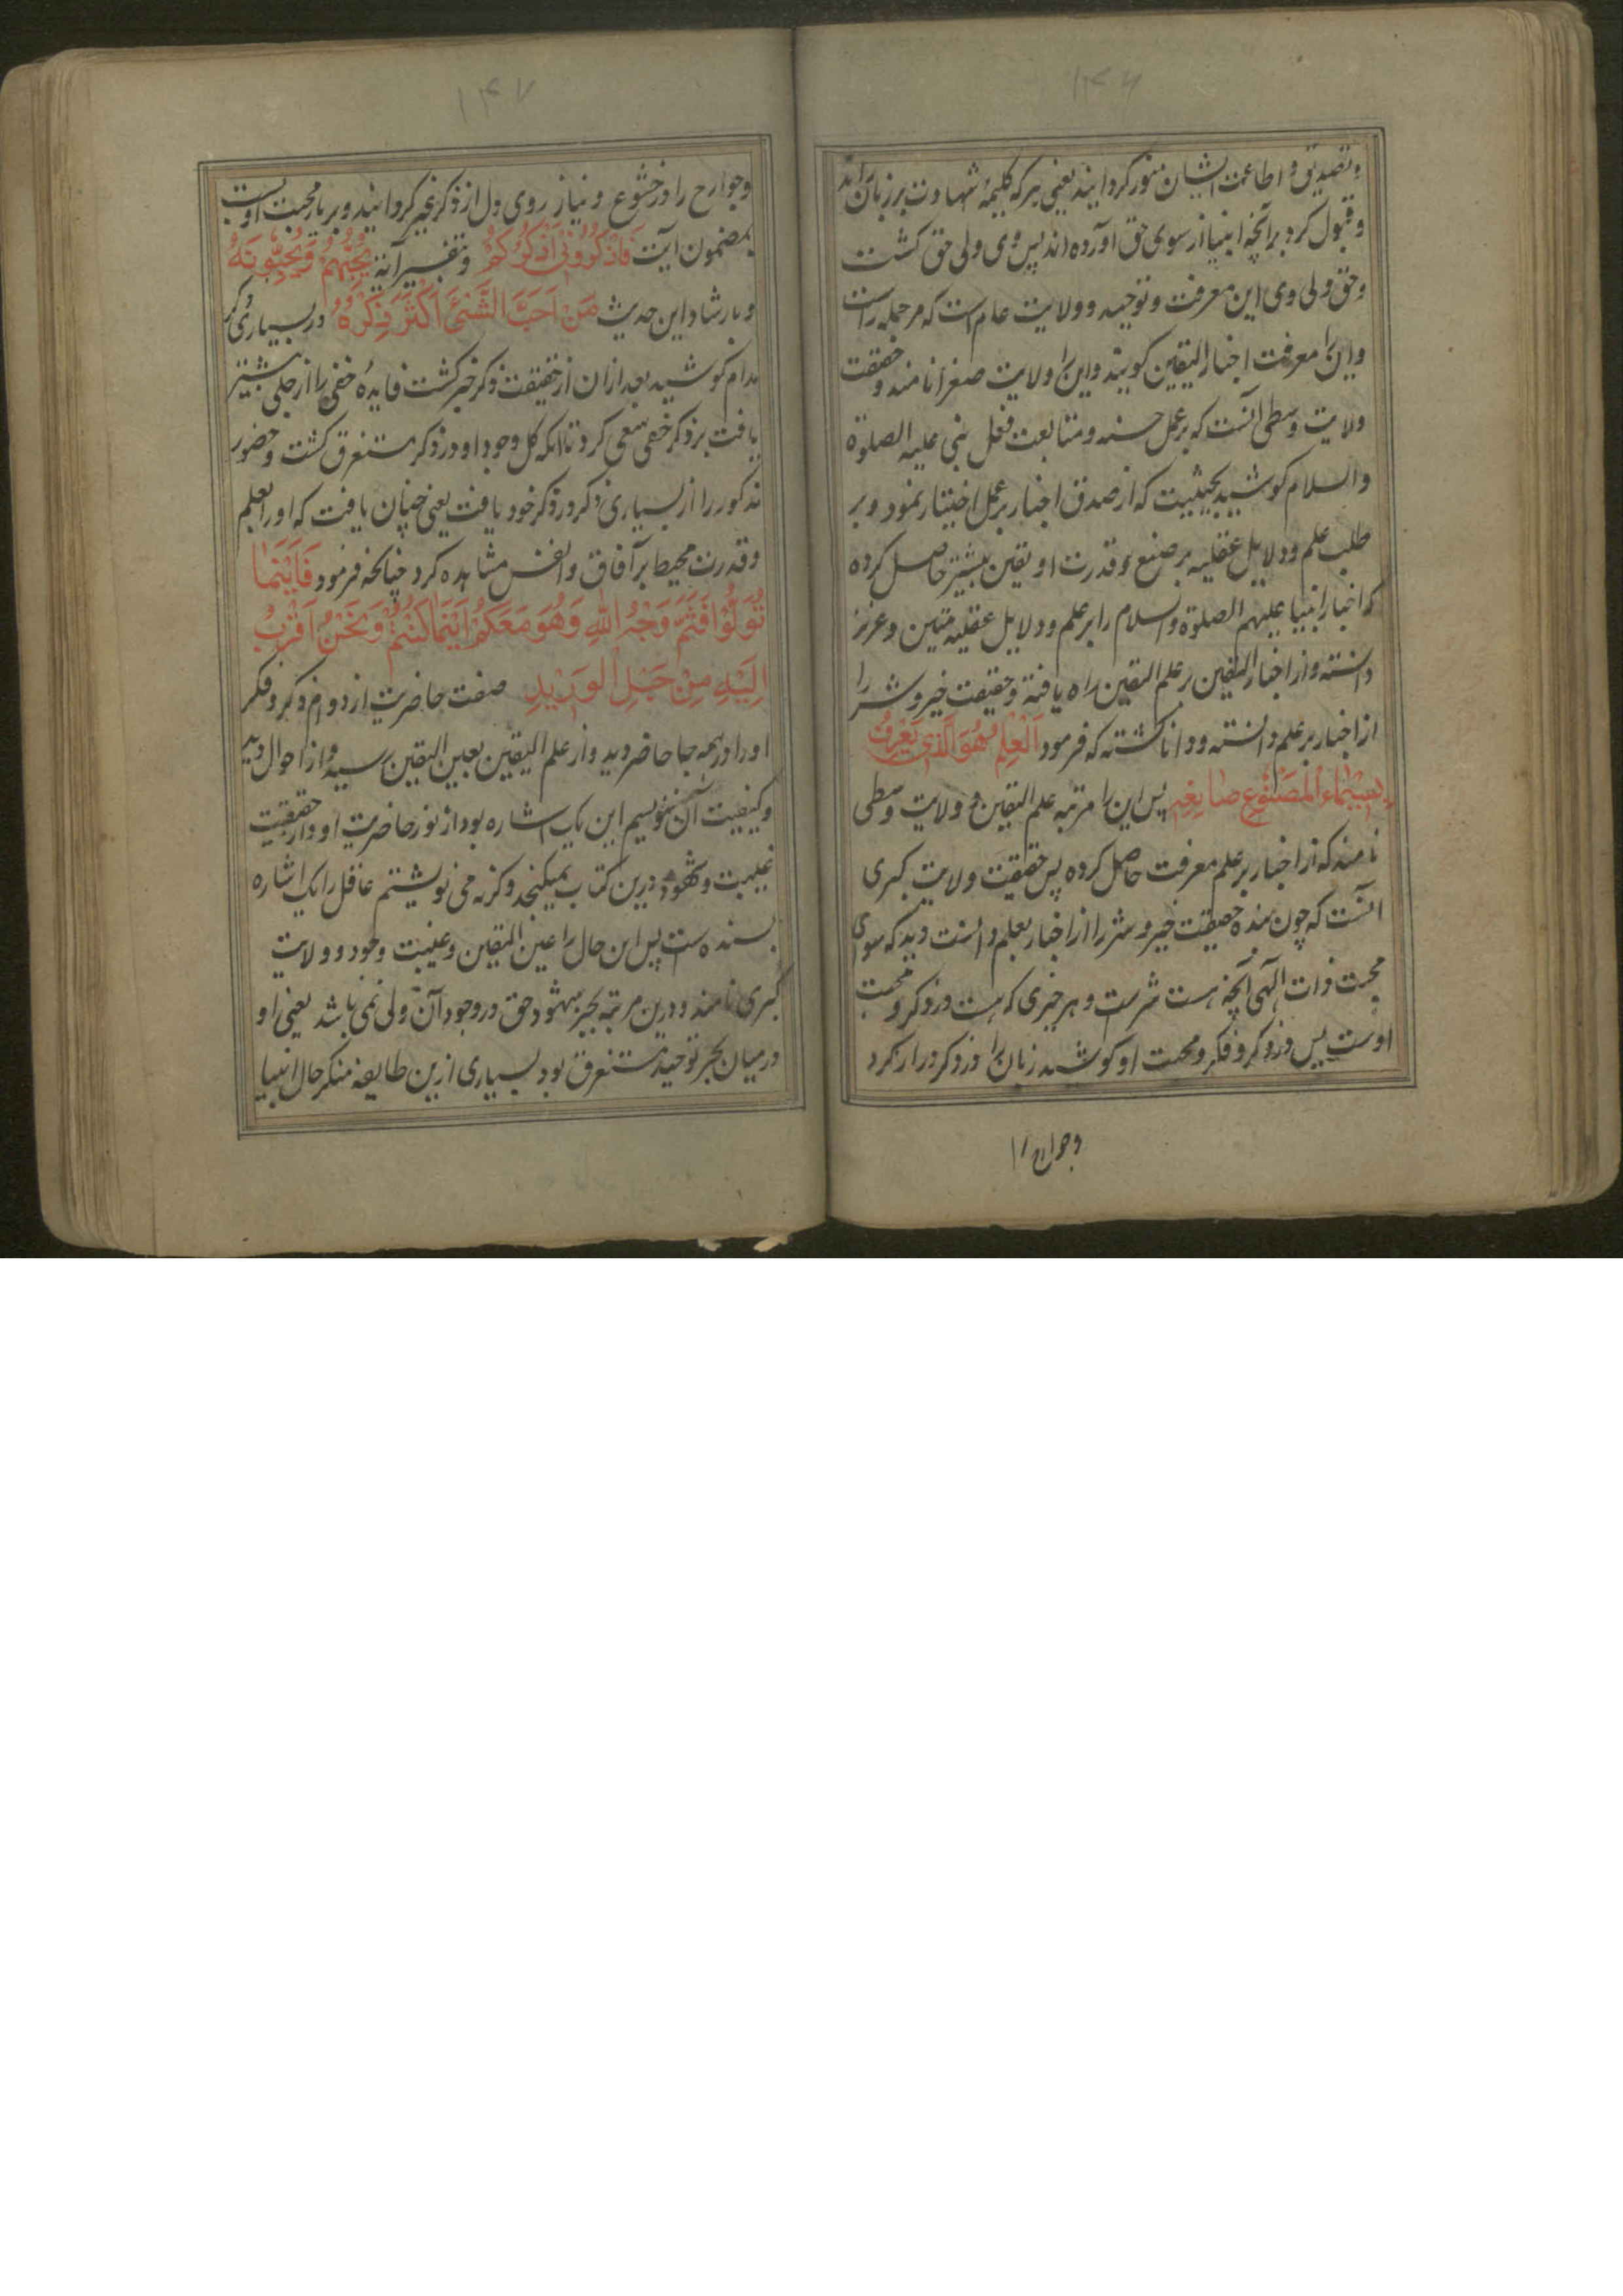 ۱۴۶
وتصدیق و اطاعت ایشان منور کردانیند یعنی هر که کلیمهٔ شهادت بر زبان راند
و قبول کرد بر آنچه انبیا از سوی حق آورده اند پس وی ولی حق کشت
و حق ولی وی این معرفت و توحید و ولایت عام است که مر جمله راست
و این را معرفت اخبار الیقین کویند و این را ولایت صغرا نامند و حقیقت
ولایت وسطی آنست که بر عمل حسنه و متابعت فعل نبی علیه الصلوة
والسلام کوشید بحیثیت که از صدق اخبار بر عمل اختیار نمود و بر
طلب علم و دلایل عقلیه بر صنع و قدرت او یقین بیشتر حاصل کرده
که اخبار انبیا علیهم الصلوة والسلام را بر علم و دلایل عقلیه متین و عزیز
دانسته و از اخبار الیقین بر علم الیقین راه یافته و حقیقت خیر و شر را
از اخبار بر علم دانسته و دانا کشته که فرمود اَلْعِلْمُ هُوَ الَّذی یَعْرِفُ
بِسِیْمَاءِ الْمَصْنُوعِ صَانِعِهِ پس این را مرتبه علم الیقین و ولایت وسطی
نامند که از اخبار بر علم معرفت حاصل کرده پس حقیقت ولایت کبری
آنست که چون بنده حقیقت خیر و شر را از اخبار بعلم دانست دید که سوای
محبت ذات الهی آنچه هست شر است و هر خیری که هست در ذکر و محبت
اوست پس در ذکر و فکر و محبت او کوشید زبان را در ذکر در ار نکرد
وجوارح را
۱۴۷
وجوارح را در خشوع و نیاز روی دل از ذکر غیر کردانیند و بر بار محبت او بست
بمضمون آیت فَاذْکُرُوْنِیْ اَذْکُرْکُمْ و تفسیر آیة یُحِبُّهُمْ وَیُحِبُّوْنَهُ
و بارشاد این حدیث مَنْ اَحَبَّ الشَّیْءَ اَکْثَرَ ذِکْرَهُ در بسیاری ذکر
مدام کوشید بعد ازان از حقیقت ذکر خبر کشت فایدهٔ خفی را از جلی بیشتر
یافت بر ذکر خفی سعی کرد تا انکه کل وجود او در ذکر مستغرق کشت و حضور
مذکور را از بسیاری ذکر در ذکر خود یافت یعنی چنان یافت که او را بعلم
و قدرت محیط بر آفاق و انفس مشاهده کرد چنانکه فرمود فَاَیْنَمَا
تُوَلُّوْا فَثَمَّ وَجْهُ اللهِ وَهُوَ مَعَکُمْ اَیْنَمَا کُنْتُمْ وَنَحْنُ اَقْرَبُ
اِلَیْهِ مِنْ حَبْلِ الْوَرِیْدِ صفت حاضریت از دوام ذکر و فکر
او را در همه جا حاضر دید و از علم الیقین بعین الیقین رسید و از احوال دید
و کیفیت آن ننویسیم این یک اشاره بود از نور حاضریت او و از حقیقت
غیبت و شهود درین کتاب نمیکنجد وکرنه می نوشتم عاقل را یک اشاره
بسنده است پس این حال را عین الیقین و غیبت وجود و ولایت
کبری نامند و درین مرتبه بجز شهود حق در وجود آن ولی نمی باشد یعنی او
در میان بحر توحید مستغرق بود بسیاری ازین طایفه منکر حال انبیا